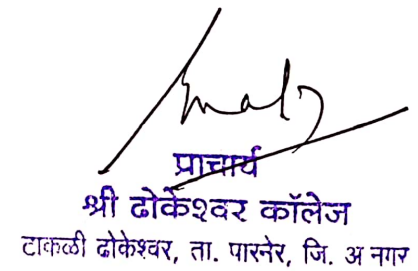 प्राचार्य
श्री ढोकेश्वर कॉलेज
टाकळी ढोकेश्वर, ता. पारनेर, जि. अ नगर